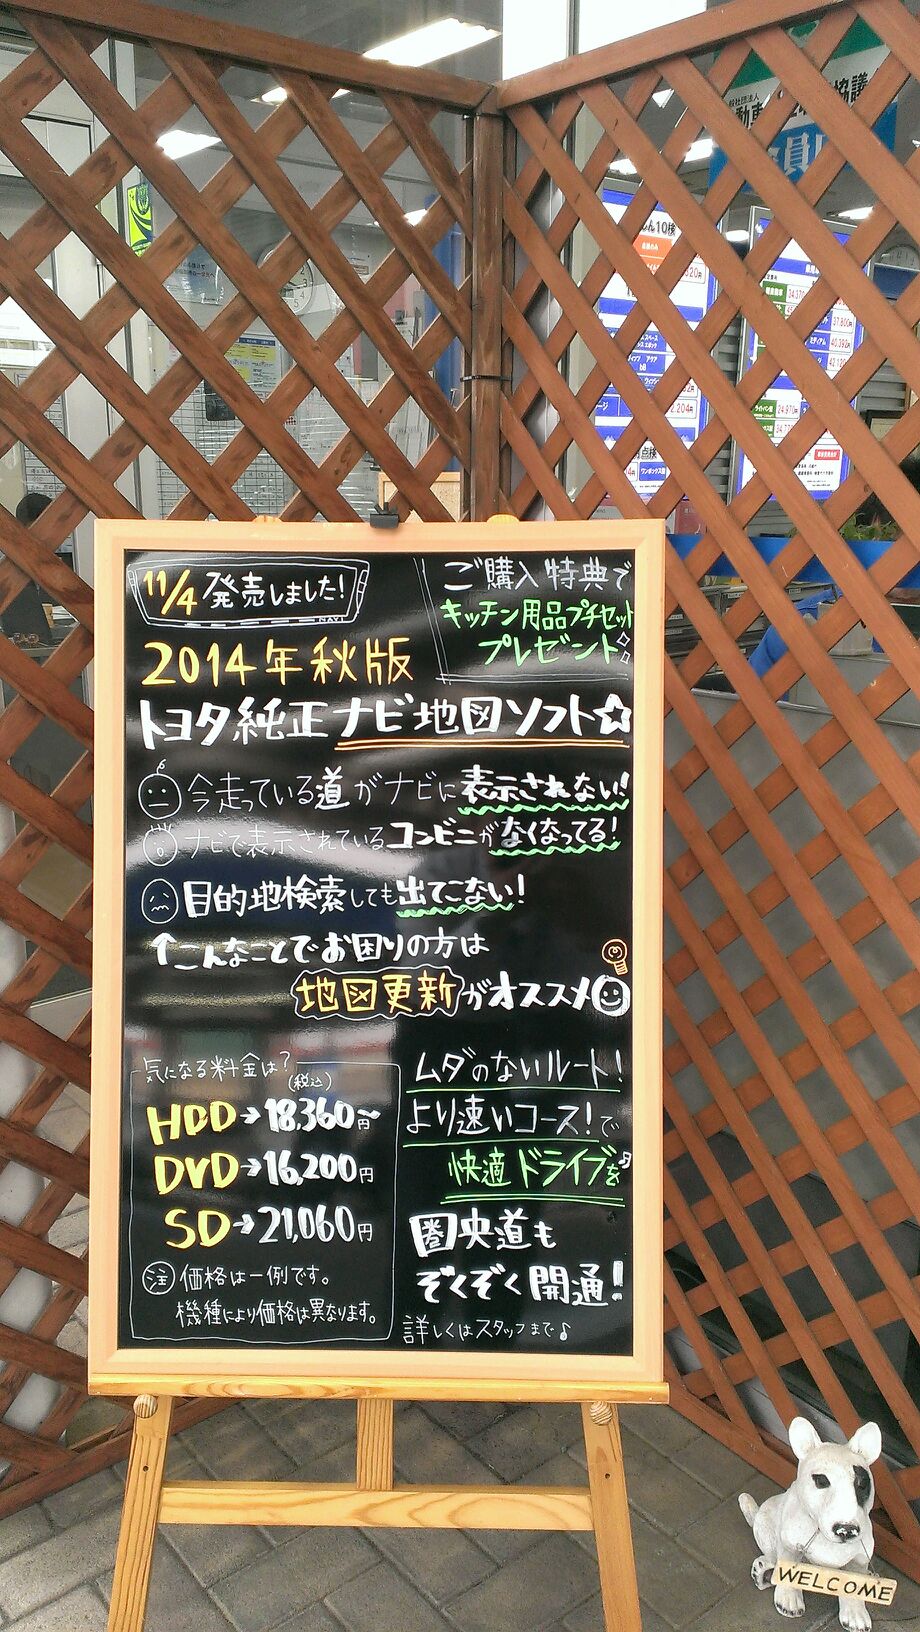 11/4 発売しました!
NAVI
ご購入特典で
キッチン用品プチセット
プレゼント
2014年秋版
トヨタ純正ナビ地図ソフト☆
今走っている道がナビに表示されない!
ナビで表示されているコンビニがなくなってる!
目的地検索しても出てこない!
↑こんなことでお困りの方は
地図更新がオススメ
気になる料金は?
(税込)
HDD→18,360円~
DVD→16,200円
SD→21,060円
注 価格は一例です。
機種により価格は異なります。
ムダのないルート!
より速いコース!で
快適ドライブを♪
圏央道も
ぞくぞく開通!
詳しくはスタッフまで♪
WELCOME
協議
10検
2,204円
ワンボックス
37,800円
ミディアム 40,392円
24,970円